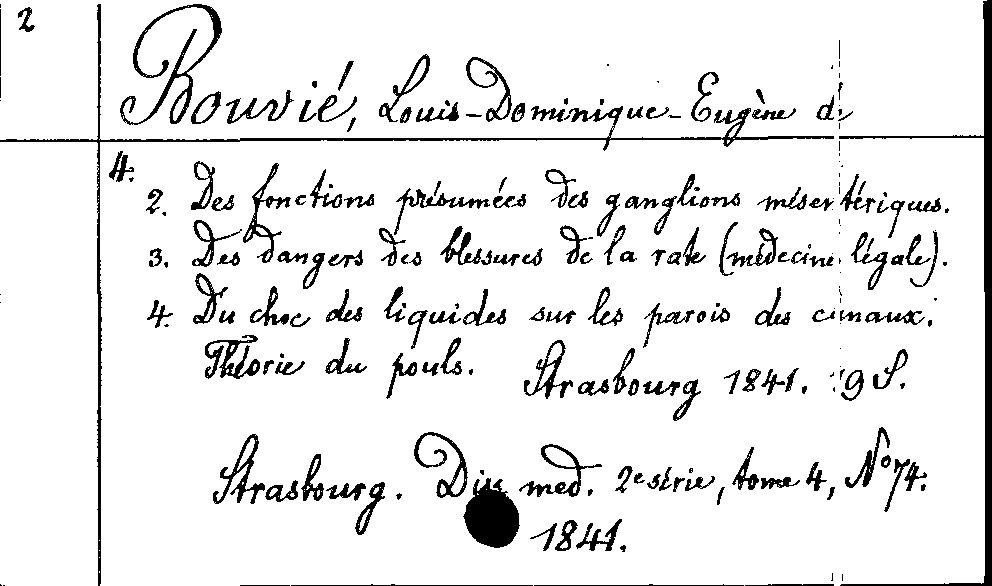 2
Bouvié, Louis-Dominique-Eugène de
4.
2. Des fonctions présumées des ganglions mésentériques.
3. Des dangers des blessures de la rate (médecine légale).
4. Du choc des liquides sur les parois des canaux.
Théorie du pouls. Strasbourg 1841. 9 S.
Strasbourg. Diss med. 2e série, tome 4, No 74.
1841.